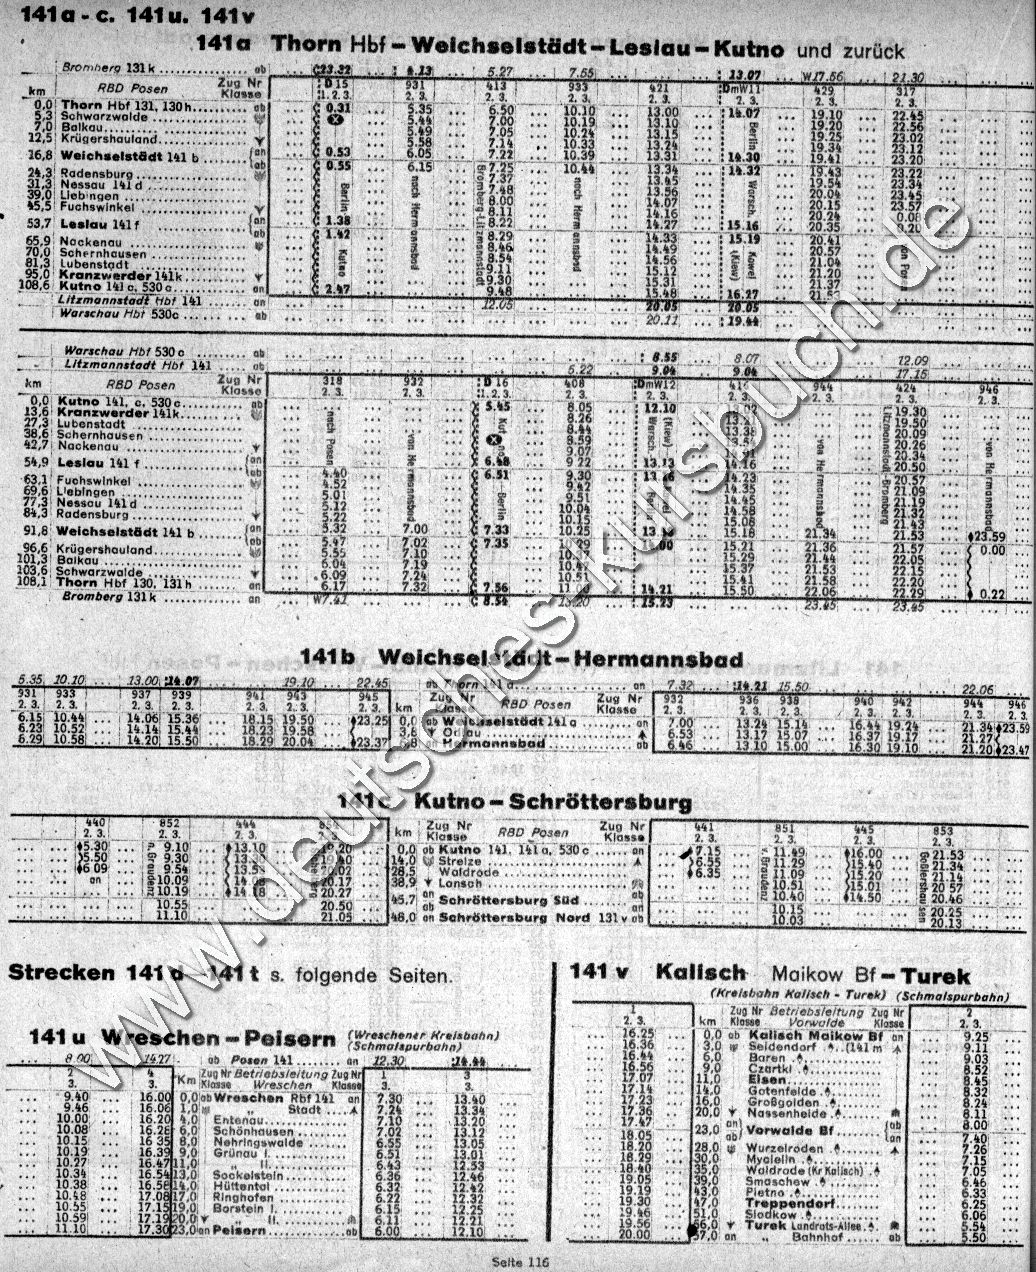 141a - c. 141u. 141v
141a Thorn Hbf – Weichselstädt – Leslau – Kutno und zurück
Bromberg 131k ab C23.32 6.13 5.27 7.55 13.07 W17.56 21.30
km RBD Posen Zug Nr D15 931 413 933 421 DmW11 429 317
Klasse 1. 2. 3. 2. 3. 2. 3. 2. 3. 2. 3. 2. 3. 2. 3. 2. 3.
0,0 Thorn Hbf 131, 130h ab 0.31 5.35 6.50 10.10 13.00 14.07 19.10 22.45
5,3 Schwarzwalde 5.44 7.00 10.19 13.10 19.20 22.56
7,0 Balkau 5.49 7.05 10.24 13.15 19.25 23.02
12,5 Krügershauland 5.58 7.14 10.33 13.24 19.34 23.12
16,8 Weichselstädt 141 b an 0.53 6.05 7.22 10.39 13.31 14.30 19.41 23.20
ab 0.55 6.15 7.25 10.44 13.34 14.32 19.43 23.22
24,3 Radensburg 7.37 13.45 19.54 23.34
31,3 Nessau 141 d 7.48 13.56 20.04 23.45
39,0 Liebingen 8.00 14.07 20.15 23.57
45,5 Fuchswinkel 8.11 14.16 20.24 0.08
53,7 Leslau 141 f an 1.38 8.22 14.27 15.16 20.35 0.20
ab 1.42 8.29 14.33 15.19 20.41
65,9 Nackenau 8.46 14.49 20.57
70,0 Schernhausen 8.54 14.56 21.04
81,3 Lubenstadt 9.11 15.12 21.20
95,0 Kranzwerder 141k 9.30 15.31 21.37
108,6 Kutno 141 c, 530 c an 2.47 9.48 15.48 16.27
Litzmannstadt Hbf 141 an 12.05 20.05 20.05
Warschau Hbf 530c ab 20.11 19.44
Warschau Hbf 530 c ab 8.55 8.07 12.09
Litzmannstadt Hbf 141 ab 5.22 9.04 9.04 17.15
km RBD Posen Zug Nr 318 932 D 16 408 DmW12 944 424 946
Klasse 2. 3. 2. 3. 1. 2. 3. 2. 3. 2. 3. 2. 3. 2. 3. 2. 3.
0,0 Kutno 141, c, 530 c ab 5.45 8.05 12.10 19.30
13,6 Kranzwerder 141k 8.26 19.50
27,3 Lubenstadt 8.44 20.09
38,6 Schernhausen 8.59 20.26
42,7 Nackenau 9.07 20.34
54,9 Leslau 141 f an 6.48 9.22 13.13 14.16 20.50
ab 4.40 6.51 9.30 14.23 20.57
63,1 Fuchswinkel 4.52 9.42 14.35 21.09
69,6 Liebingen 5.01 9.51 14.45 21.19
77,3 Nessau 141 d 5.12 10.04 14.58 21.32
84,3 Radensburg 5.22 10.15 15.08 21.43
91,8 Weichselstädt 141 b an 5.32 7.00 7.33 10.25 15.18 21.34 21.53 23.59
ab 5.47 7.02 7.35 15.21 21.36 21.57 0.00
96,6 Krügershauland 5.55 7.10 15.29 21.44 22.05
101,3 Balkau 6.04 7.19 15.37 21.53 22.15
103,6 Schwarzwalde 6.09 7.24 10.51 15.41 21.58 22.20
108,1 Thorn Hbf 130, 131h an 6.17 7.32 7.56 14.21 15.50 22.06 22.29 0.22
Bromberg 131 k an W7.41 8.54 13.20 15.23 23.45 23.45
141b Weichselstädt – Hermannsbad
5.35 10.10 13.00 14.07 19.10 22.45 ab Thorn 141 a an 7.32 14.21 15.50 22.06
931 933 937 939 941 943 945 Zug Nr RBD Posen Zug Nr 932 936 938 940 942 944 946
2. 3. 2. 3. 2. 3. 2. 3. 2. 3. 2. 3. 2. 3. km Klasse Klasse 2. 3. 2. 3. 2. 3. 2. 3. 2. 3. 2. 3. 2. 3.
6.15 10.44 14.06 15.36 18.15 19.50 23.25 0,0 ab Weichselstädt 141 a an 7.00 13.24 15.14 16.44 19.24 21.34 23.59
6.23 10.52 14.14 15.44 18.23 19.58 6.53 13.17 15.07 16.37 19.17 21.27
6.29 10.58 14.20 15.50 18.29 20.04 23.37 an Hermannsbad ab 6.46 13.10 15.00 16.30 19.10 21.20 23.47
141c Kutno – Schröttersburg
440 852 444 Zug Nr RBD Posen Zug Nr 441 851 445 853
2. 3. 2. 3. 2. 3. km Klasse Klasse 2. 3. 2. 3. 2. 3. 2. 3.
5.30 9.10 13.10 0,0 ab Kutno 141, 141 a, 530 c an 7.15 11.49 16.00 21.53
5.50 9.30 14,0 Strelze 6.55 11.29 15.40 21.34
6.09 9.54 28,5 Waldrode 6.35 11.09 15.20 21.14
an 10.09 20.17 38,9 Lansch 10.51 15.01 20.57
10.19 20.27 45,7 an Schröttersburg Süd ab 10.40 14.50 20.46
10.55 20.50 ab an 10.15 20.25
11.10 21.05 48,0 an Schröttersburg Nord 131 v ab 10.03 20.13
Strecken 141 d – 141 t s. folgende Seiten.
141 u Wreschen – Peisern (Wreschener Kreisbahn)
(Schmalspurbahn)
8.00 14.27 ab Posen 141 an 12.30 14.44
2 4 Zug Nr Betriebsleitung Zug Nr 1 3
3. 3. Km Klasse Wreschen Klasse 3. 3.
9.40 16.00 0,0 ab Wreschen Rbf 141 an 7.30 13.40
9.46 16.06 1,0 " Stadt 7.24 13.34
10.00 16.20 4,0 Entenau 7.10 13.20
10.08 16.28 6,0 Schönhausen 7.02 13.12
10.15 16.35 8,0 Nehringswalde 6.55 13.05
10.19 16.39 9,0 Grünau I. 6.51 13.01
10.27 16.47 11,0 " II. 6.43 12.53
10.34 16.54 13,0 Sockelstein 6.36 12.46
10.38 16.58 14,0 Hüttental 6.32 12.42
10.48 17.08 17,0 Ringhofen 6.22 12.32
10.55 17.15 19,0 Borstein I. 6.15 12.25
10.59 17.19 20,0 " II. 6.11 12.21
11.10 17.30 23,0 an Peisern ab 6.00 12.10
141 v Kalisch Maikow Bf – Turek
(Kreisbahn Kalisch - Turek) (Schmalspurbahn)
1 Zug Nr Betriebsleitung Zug Nr 2
2. 3. km Klasse Vorwalde Klasse 2. 3.
16.25 0,0 ab Kalisch Maikow Bf an 9.25
16.36 3,0 Seidendorf (141 m 9.11
16.44 6,0 Baren 9.03
16.56 9,0 Czartki 8.52
17.07 11,0 Eisen 8.45
17.14 14,0 Gutenfelde 8.32
17.23 16,0 Großgolden 8.24
17.36 20,0 Nassenheide 8.11
17.47 23,0 an Vorwalde Bf ab 8.00
18.05 ab an 7.40
18.20 28,0 Wurzelroden 7.26
18.29 30,0 Myclelin 7.15
18.40 35,0 Waldrode (Kr Kalisch) 7.05
19.05 39,0 Smaschew 6.46
19.19 43,0 Pietno 6.33
19.30 47,0 Treppendorf 6.25
19.46 51,0 Slodkow 6.06
19.56 56,0 Turek Landrats-Allee 5.54
20.00 57,0 an " Bahnhof ab 5.50
Seite 116
www.deutsches-kursbuch.de